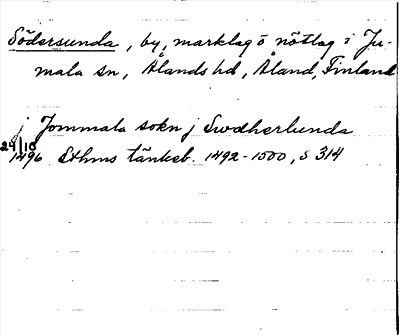 Södersunda, by, marklag o nötlag i Ju-
mala sn, Ålands hd, Åland, Finland
j Jommala sokn j Swdherlunda
24/10 1496 Sthms tänkeb. 1492-1500, s 314